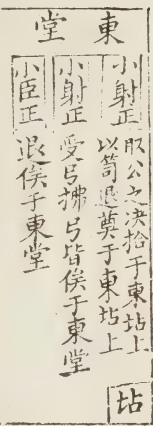 東堂
小射正
取公之决拾于東坫上
以笥退奠于東坫上
小射正
受弓拂弓皆俟于東堂
小臣正
退俟于東堂
坫